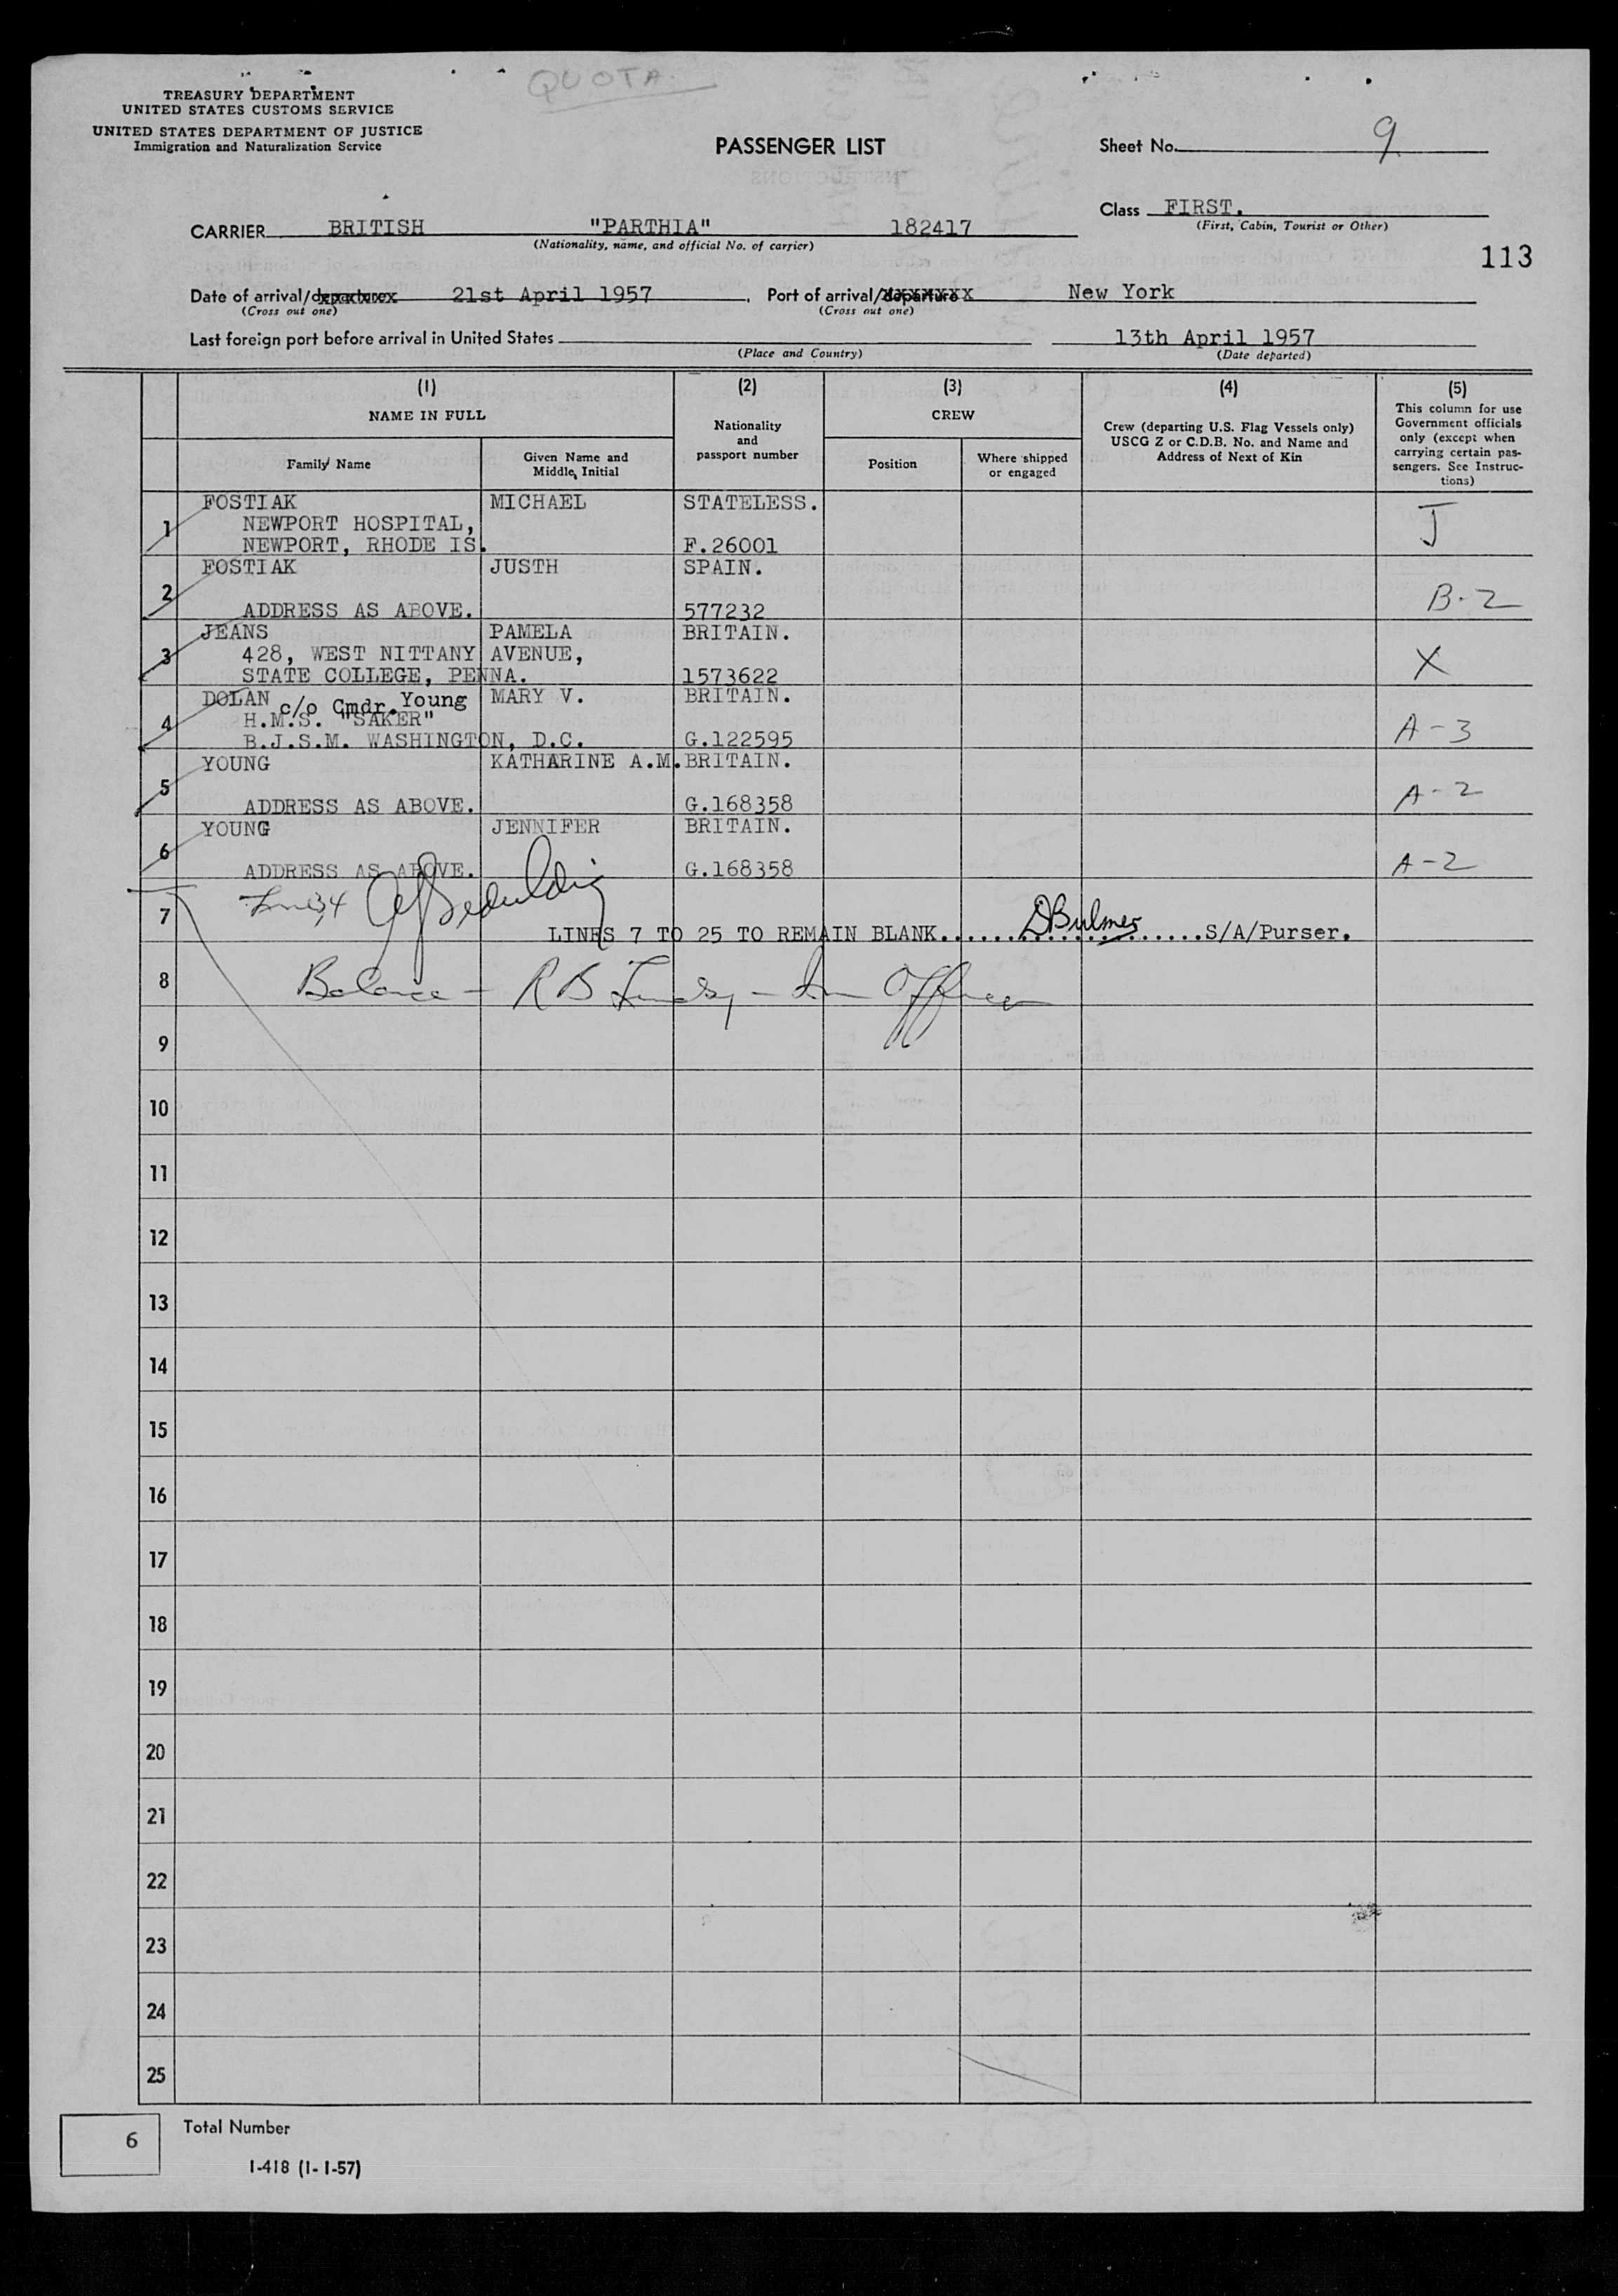 QUOTA.
TREASURY DEPARTMENT
UNITED STATES CUSTOMS SERVICE
UNITED STATES DEPARTMENT OF JUSTICE
Immigration and Naturalization Service
PASSENGER LIST
Sheet No. 9
Class FIRST.
(First, Cabin, Tourist or Other)
CARRIER BRITISH "PARTHIA" 182417
(Nationality, name, and official No. of carrier)
113
Date of arrival/departure 21st April 1957, Port of arrival/departure New York
(Cross out one) (Cross out one)
Last foreign port before arrival in United States 13th April 1957
(Place and Country) (Date departed)
(1) (2) (3) (4) (5)
NAME IN FULL
Family Name
Given Name and Middle Initial
Nationality and passport number
CREW
Position
Where shipped or engaged
Crew (departing U.S. Flag Vessels only)
USCG Z or C.D.B. No. and Name and
Address of Next of Kin
This column for use
Government officials
only (except when
carrying certain pas-
sengers. See Instruc-
tions)
1 FOSTIAK MICHAEL STATELESS. J
NEWPORT HOSPITAL,
NEWPORT, RHODE IS. F.26001
2 FOSTIAK JUSTH SPAIN. B-2
ADDRESS AS ABOVE. 577232
3 JEANS PAMELA BRITAIN. X
428, WEST NITTANY AVENUE,
STATE COLLEGE, PENNA. 1573622
4 DOLAN c/o Cmdr. Young MARY V. BRITAIN. A-3
H.M.S. "SAKER"
B.J.S.M. WASHINGTON, D.C. G.122595
5 YOUNG KATHARINE A.M. BRITAIN. A-2
ADDRESS AS ABOVE. G.168358
6 YOUNG JENNIFER BRITAIN. A-2
ADDRESS AS ABOVE. G.168358
7
LINES 7 TO 25 TO REMAIN BLANK. DBulmer S/A/Purser.
8 Balance - R B
9
10
11
12
13
14
15
16
17
18
19
20
21
22
23
24
25
6 Total Number
I-418 (1-1-57)